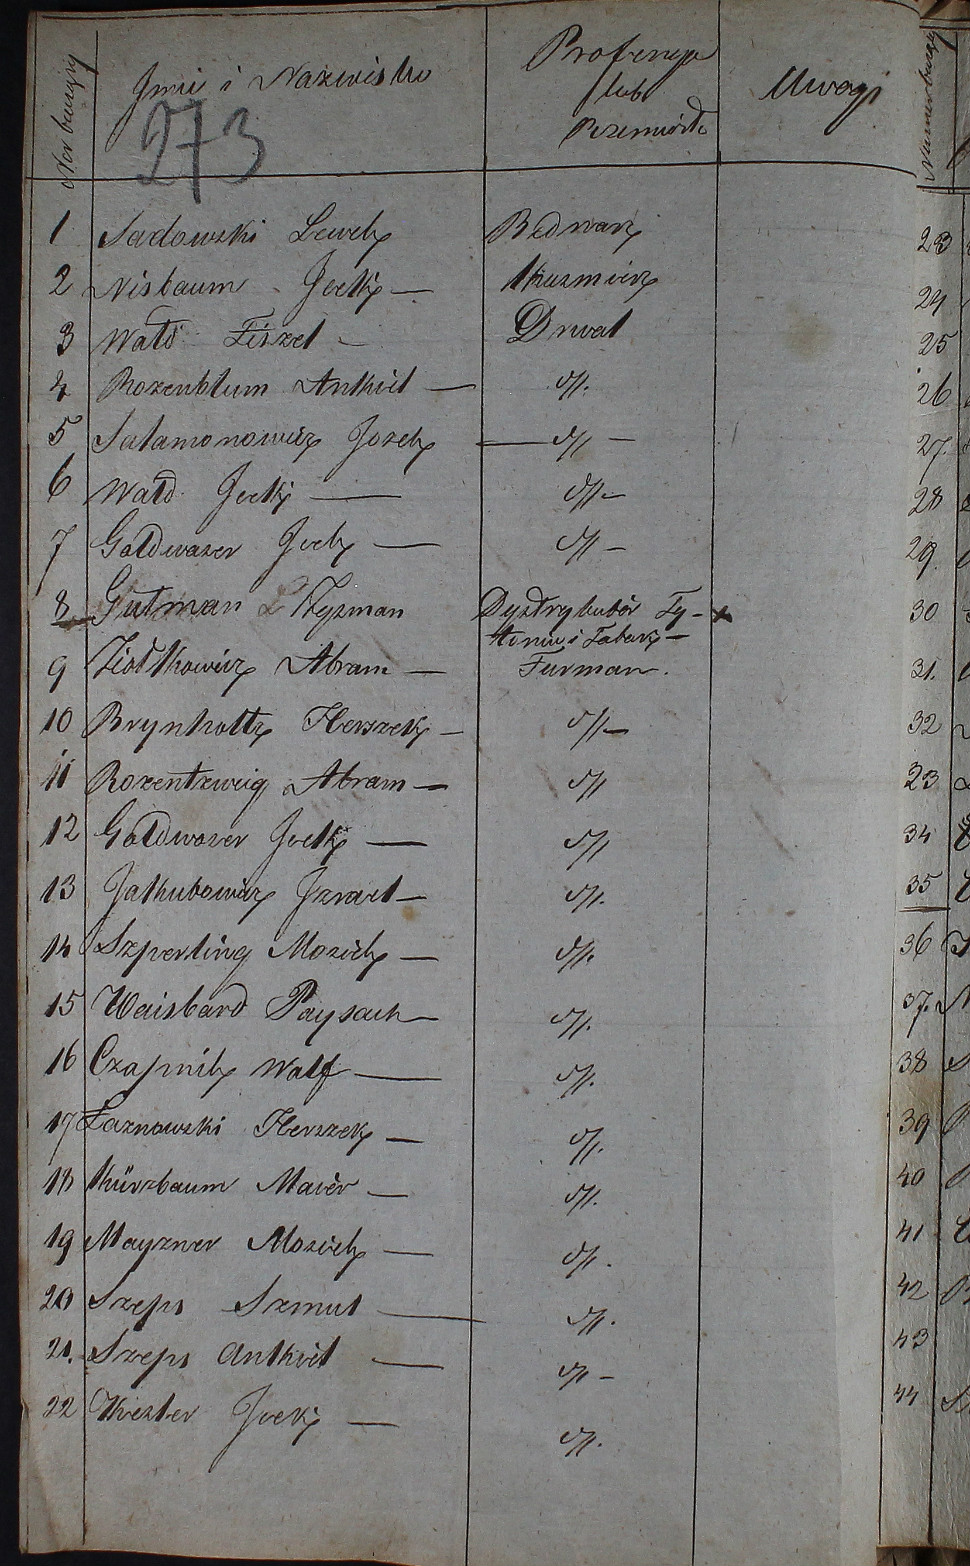 Nor bieżący Imie i Nazwisko Profesya lub Rzemiosło Uwagi
273
1 Sadowski Lewek Bednarz
2 Nisbaum Icek — Kuśmierz
3 Wald Fiszel — Drwal
4 Rozenblum Ankiel — d//.
5 Salamonowicz Josek — d// —
6 Wald Icek — d// —
7 Goldwaser Icek — d// —
8 Gutman Zyzman Dystrybutor Ty-
toniu i Tabaki —
9 Ziołkowicz Abram — Furman.
10 Brynholtz Herszek — d// —
11 Rozentzweig Abram — d//
12 Goldwaser Icek — d//
13 Jakubowicz Izrael — d//.
14 Szperling Mosiek — d//.
15 Waisbard Paysach — d//.
16 Czapnik Wolf — d//.
17 Łaznowski Herszek — d//.
18 Kürzbaum Maier — d//.
19 Mayzner Mosiek — d//.
20 Szeps Szmul — d//.
21. Szeps Ankiel — d// —
22 Kiester Icek — d//.
Numer bieżący
23
24
25
26
27.
28
29
30
31.
32
33
34
35
36
37.
38
39
40
41
42
43
44